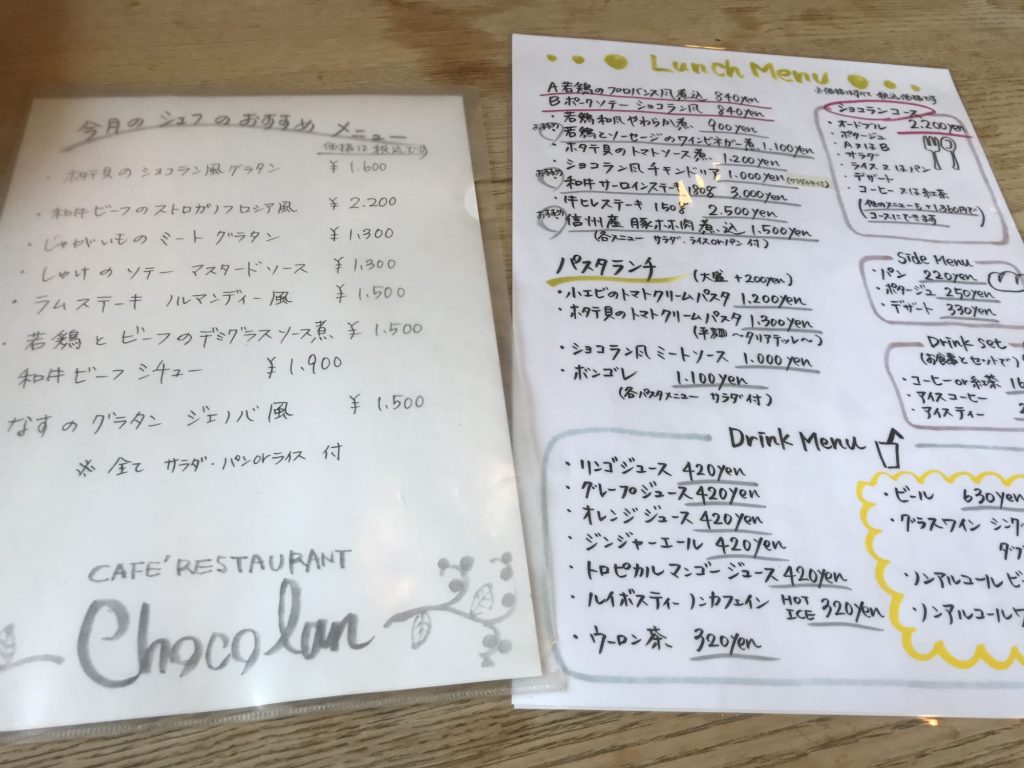 今月の シェフ のおすすめ メニュー
価格は税込です
・ホタテ貝の ショコラン風グラタン ¥1.600
・和牛ビーフのストロガノフロシア風 ¥2.200
・じゃがいもの ミート グラタン ¥1,300
・しゃけの ソテー マスタードソース ¥1,300
・ラムステーキ ノルマンディー風 ¥1.500
・若鶏とビーフのデミグラスソース煮 ¥1.500
和牛ビーフシチュー ¥1,900
なすのグラタン ジェノバ風 ¥1.500
※全て サラダ・パンorライス 付
CAFE'RESTAURANT
Chocolan
Lunch Menu
※価格はすべて 税込価格です
A若鶏のプロバンス風煮込 840yen
Bポークソテー ショコラン風 840yen
・若鶏和風やわらか煮 900yen
おすすめ
・若鶏とソーセージのワインビネガー煮 1.100yen
・ホタテ貝のトマトソース煮 1.200yen
・ショコラン風チキンドリア 1.000yen(サラダ付)
おすすめ
・和牛サーロインステーキ180g 3.000yen
・牛ヒレステーキ 150g 2.500yen
おすすめ
信州産 豚ホホ肉煮込 1.500yen
(各メニュー サラダ・ライスorパン付)
ショコランコース
2.200yen
・オードブル
・ポタージュ
・A又はB
・サラダ
・ライス又はパン
・デザート
・コーヒー又は紅茶
(他のメニューも+1,360円でコースにできます)
パスタランチ (大盛+200yen)
・小エビのトマトクリームパスタ 1.200yen
・ホタテ貝のトマトクリームパスタ 1.300yen
(平麺〜タリアテッレ〜)
・ショコラン風ミートソース 1.000yen
・ボンゴレ 1.100yen
(各パスタメニュー サラダ付)
Side Menu
・パン 220yen
・ポタージュ 250yen
・デザート 330yen
Drink Set
(お食事とセットで)
・コーヒーor紅茶
・アイスコーヒー
・アイスティー
Drink Menu
・リンゴジュース 420yen
・グレープジュース 420yen
・オレンジジュース 420yen
・ジンジャーエール 420yen
・トロピカルマンゴージュース 420yen
・ルイボスティーノンカフェイン HOT ICE 320yen
・ウーロン茶 320yen
・ビール 630yen
・グラスワイン
・ノンアルコール
・ノンアルコール